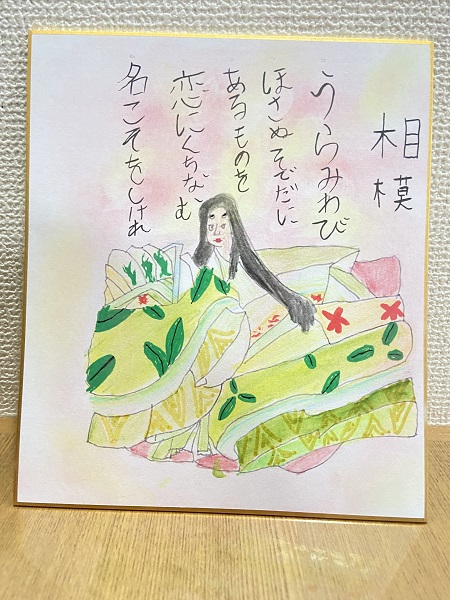 相模
うらみわび
ほさぬそでだに
あるものを
恋にくちなむ
名こそをしけれ